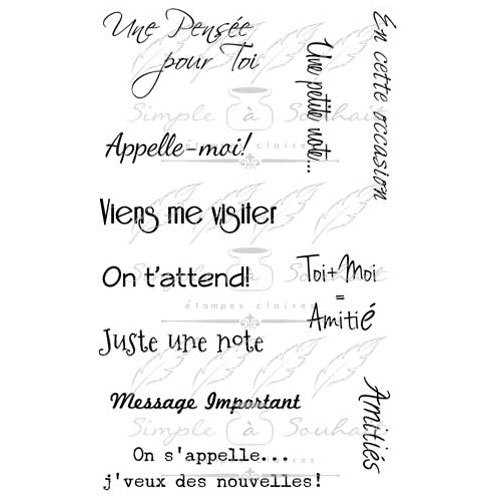 Une Pensée
pour Toi
Une petite note...
En cette occasion
Simple à Souhait
étampes claires
Appelle-moi!
Viens me visiter
On t'attend!
Toi+Moi
=
Amitié
étampes claires
Juste une note
Message Important
Amitiés
Simple à Souhait
On s'appelle...
j'veux des nouvelles!